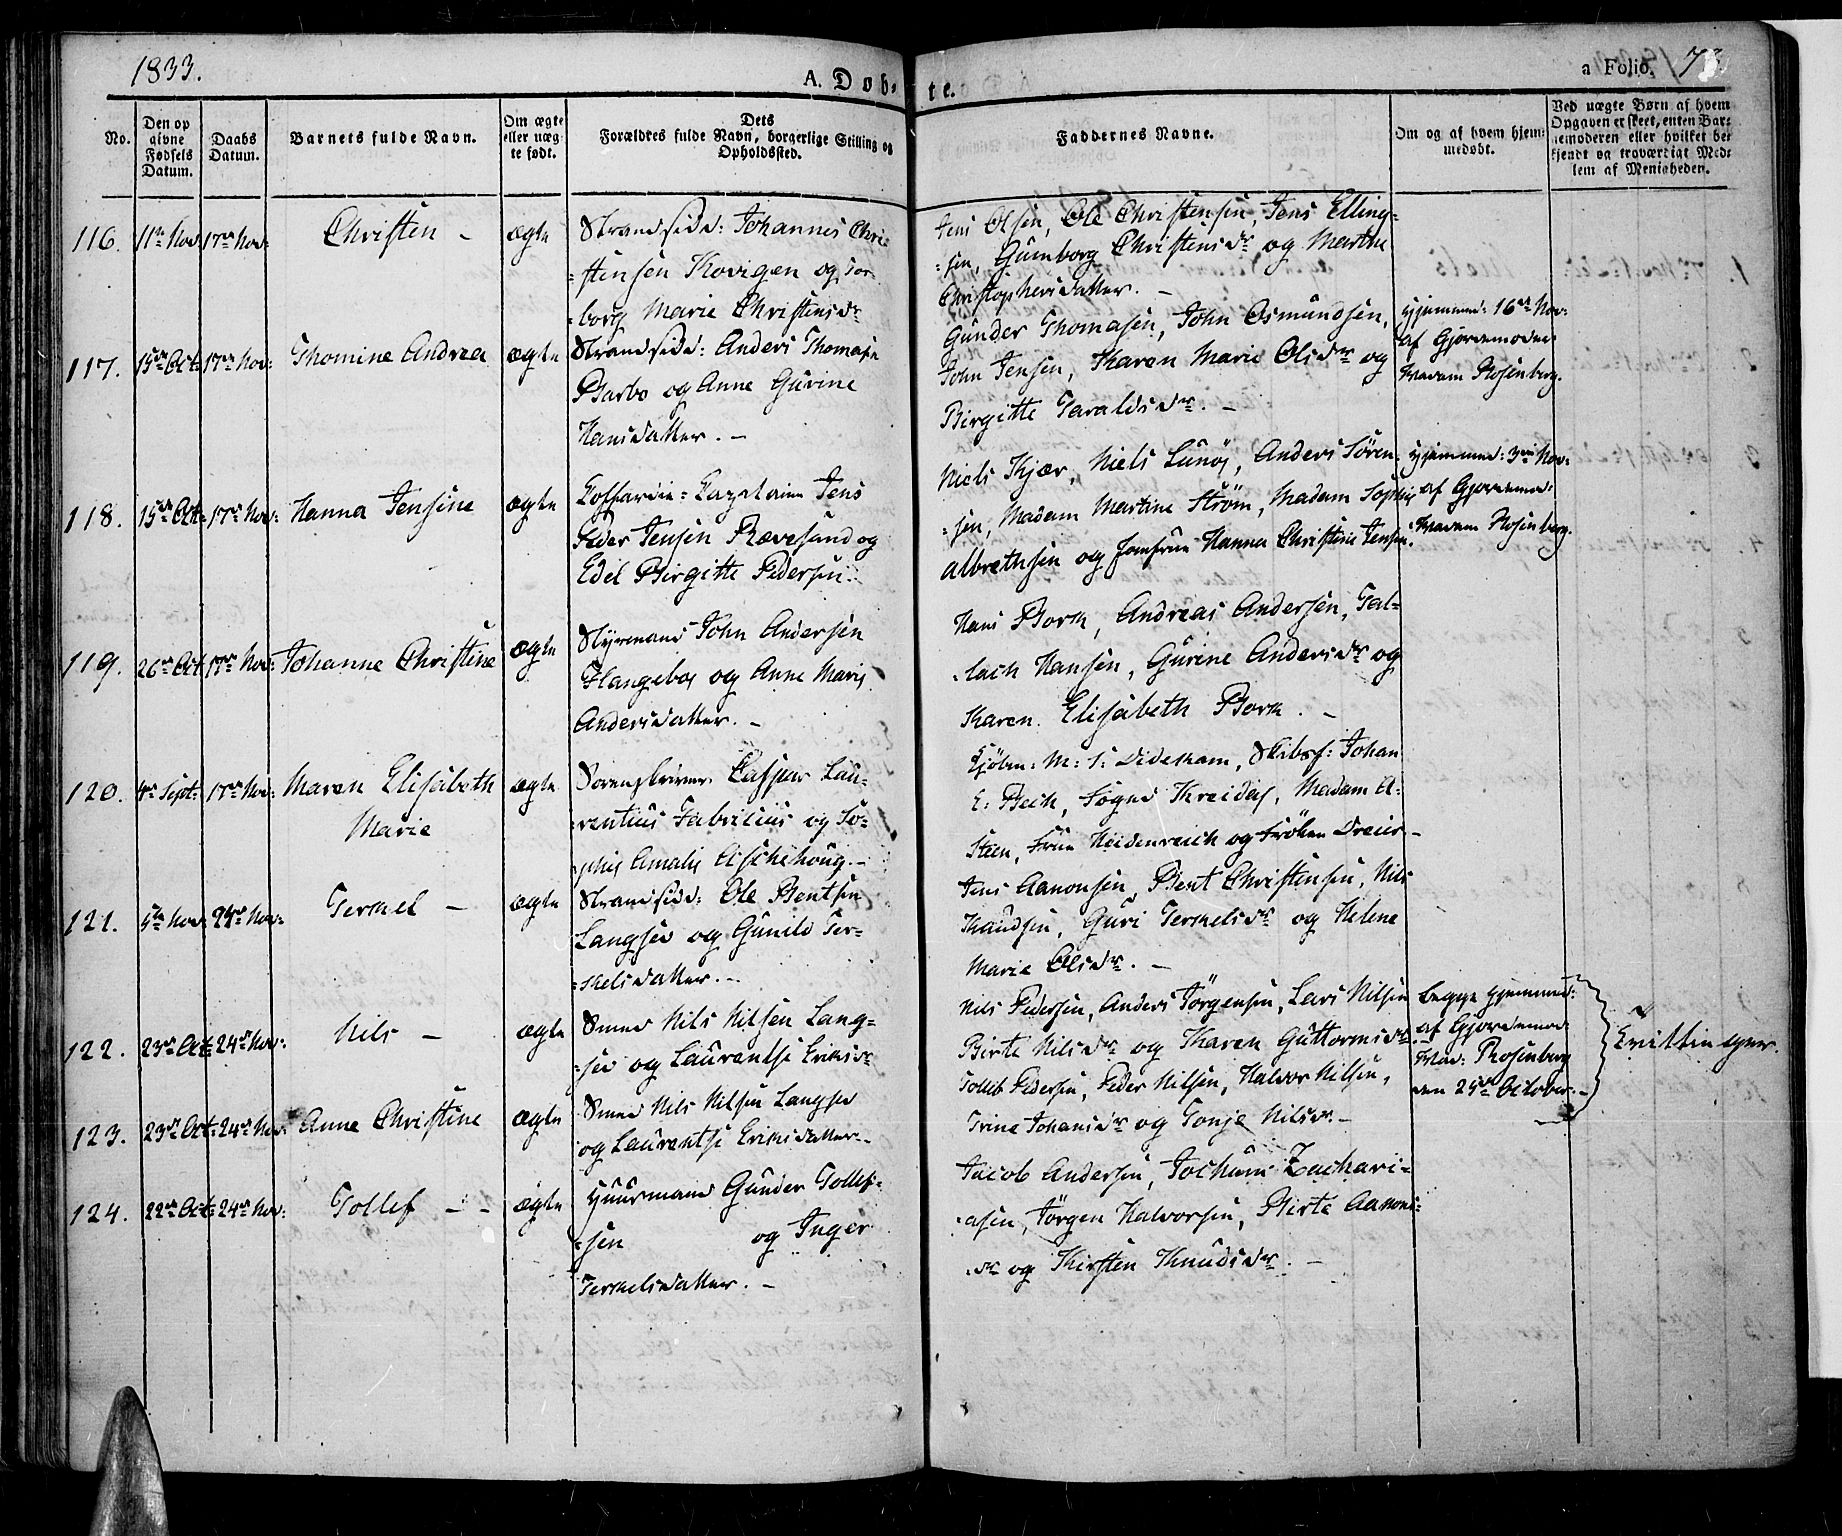 1833.
A. Døb-
te.
a Folio. 73
No.
Den op
givne
Fødsels
Datum.
Daabs
Datum.
Barnets fulde Navn.
Om ægte
eller uæg-
te født.
Dets
Forældres fulde Navn, borgerlige Stilling og
Opholdssted.
Faddernes Navne.
Om og af hvem hjem-
medøbt.
Ved uægte Børn af hvem
Opgaven er skeet, enten Bar-
nemoderen eller hvilket be-
kjendt og troværdigt Med-
lem af Menigheden.
116. 11te Nov: 17de Nov: Christen - ægte
Strandsidd: Johannes Chri-
stensen Kovigen og Tor-
borg Marie Christensdr
Jens Olsen, Ole Christensen, Jens Elling-
sen, Gunborg Christensdr og Marthe
Christophersdatter. -
117. 15de Oct: 17de Nov: Thomine Andrea ægte
Strandsidd: Anders Thomasen
Barbo og Anne Gurine
Hansdatter. -
Gunder Thomasen, John Osmundsen,
John Jensen, Karen Marie Olsdr og
Birgitte Taraldsdr. -
hjemmed: 16de Nov:
af Gjordemoder
Madam Rosenberg.
118. 15de Oct: 17de Nov: Hanna Jensine ægte
Coffardie-Capitaine Jens
Peder Jensen Rævesand og
Edel Birgitte Pedersen.
Niels Kjær, Niels Lunøe, Anders Sören-
sen, Madam Martine Strøm, Madam Sophie
Albrethsen og Jomfrue Hanna Christine Jensen.
hjemmed: 3die Nov:
af Gjordemod:
Madam Rosenberg.
119. 26de Oct: 17de Nov: Johanne Christine ægte
Styrmand John Andersen
Flangeboe og Anne Marie
Andersdatter. -
Hans Bork, Andreas Andersen, Tal-
lach Hansen, Gurine Andersdr og
Karen Elisabeth Bork. -
120. 4de Sept: 17de Nov: Maren Elisabeth
Marie
ægte
Sorenskriver Caspar Lau-
rentius Fabritius og So-
phie Amalie Aschehoug. -
Kjöbm: M: S: Dideskam, Skibsf: Johan
C: Bech, Fogned Kreidal, Madam A:
Steen, Frue Heidenreich og Fröken Dreier -
121. 5te Nov: 24de Nov: Terkel - ægte
Strandsidd: Ole Bentsen
Langsev og Gunild Ter-
kelsdatter. -
Jens Aanonsen, Bent Christensen, Nils
Knudsen, Guri Terkelsdr og Helene
Marie Olsdr. -
122. 23de Oct: 24de Nov: Nils - ægte
Smed Nils Nilsen Lang-
sev og Laurentse Eriksdr
Nils Pedersen, Anders Jörgensen, Lars Nilsen
Birte Nilsdr og Karen Guttormsdr.
begge hjemmed:
af Gjordemod:
Mad: Rosenberg
den 25de October. -
Er Tvillinger.
123. 23de Oct: 24de Nov: Anne Christine ægte
Smed Nils Nilsen Langsev
og Laurentse Eriksdatter. -
Tollef Pedersen, Peder Nilsen, Halvor Nilsen,
Trine Johansdr og Tonje Nilsdr. -
124. 22de Oct: 24de Nov: Tollef - - ægte
Huusmand Gunder Tollef-
sen og Inger
Terkelsdatter. -
Jacob Andersen, Jochum Zachari-
asen, Jörgen Halvorsen, Birte Aanons-
dr og Kirsten Knudsdr. -